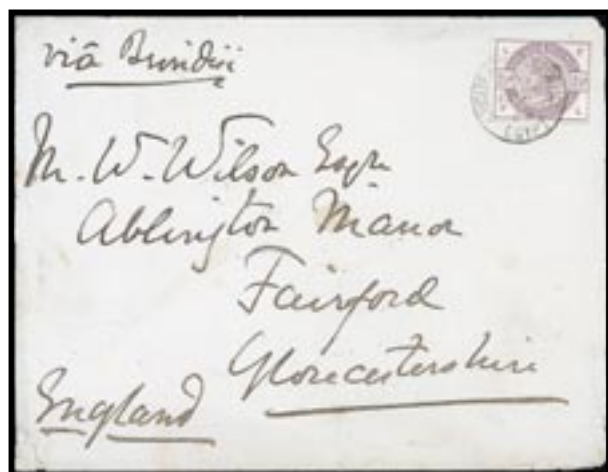 viâ Brindisi
M. W. Wilson Esqre
Ablington Manor
Fairford
Gloucestershire
England